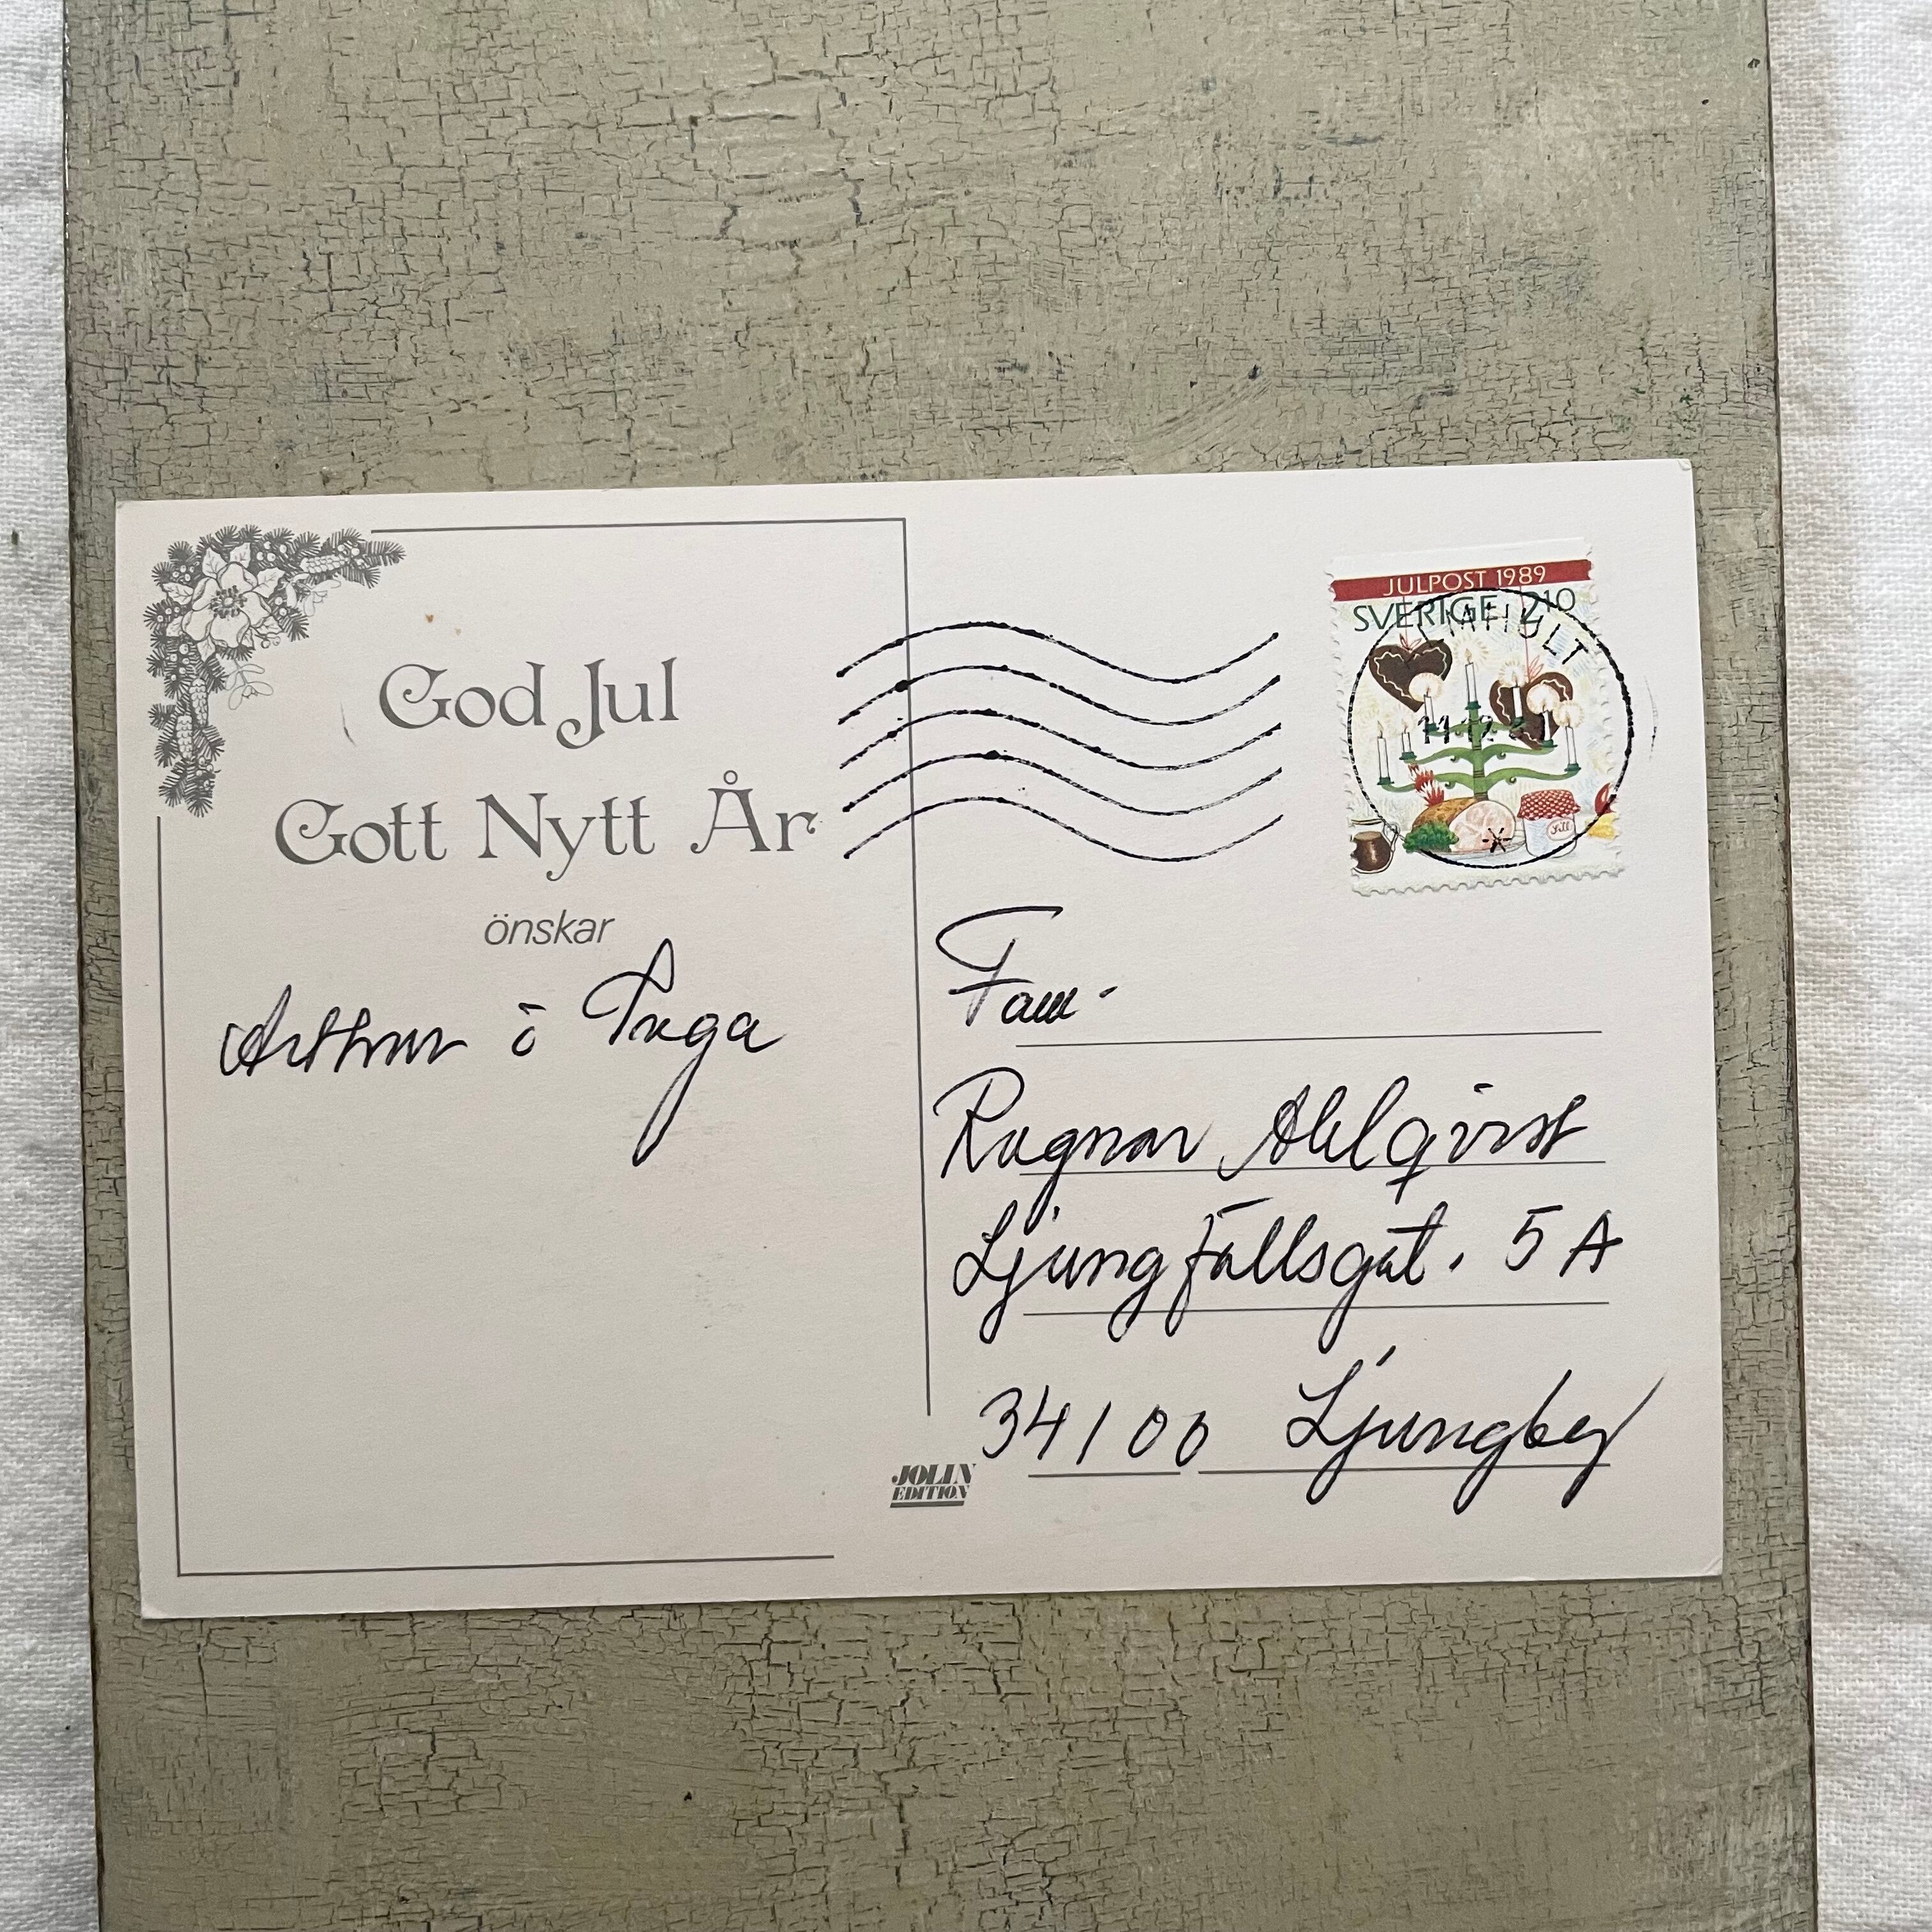 God Jul
Gott Nytt År
önskar
Arthur o Inga
JULPOST 1989
SVERIGE 210
Sill
Fam.
Ragnar Ahlqvist
Ljungfällsgat. 5 A
34100 Ljungby
JOLIN
EDITION